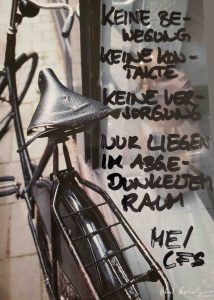 KEINE BE-
WEGUNG
KEINE KON-
TAKTE
KEINE VER-
SORGUNG
NUR LIEGEN
IM ABGE-
DUNKELTEM
RAUM
ME/
CFS